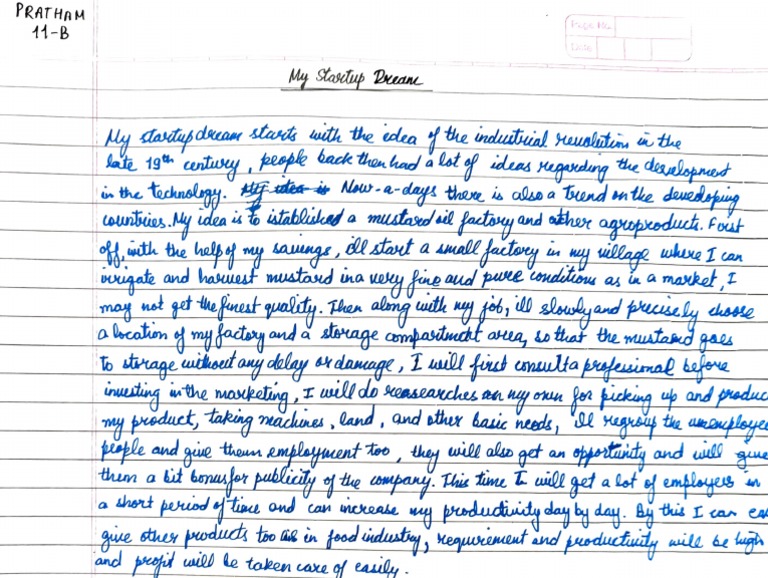 PRATHAM
11-B
Page No.
Date
My Startup Dream
My startup dream starts with the idea of the industrial revolution in the
late 19th century, people back then had a lot of ideas regarding the development
in the technology. My idea is Now-a-days there is also a trend on the developing
countries. My idea is to istablished a mustard oil factory and other agroproducts. First
off, with the help of my savings, ill start a small factory in my village where I can
irrigate and harvest mustard in a very fine and pure conditions as in a market, I
may not get the finest quality. Then along with my job, ill slowly and precisely choose
a location of my factory and a storage compartment area, so that the mustard goes
to storage without any delay or damage, I will first consult a professional before
investing in the marketing, I will do reasearches on my own for picking up and produc
my product, taking machines, land, and other basic needs, Ill regroup the unemployee
people and give them employment too, they will also get an opportunity and will give
them a bit bonus for publicity of the company. This time I will get a lot of employees in
a short period of time and can increase my productivity day by day. By this I can ea
give other products too in food industry, requirement and productivity will be high
and profit will be taken care of easily.